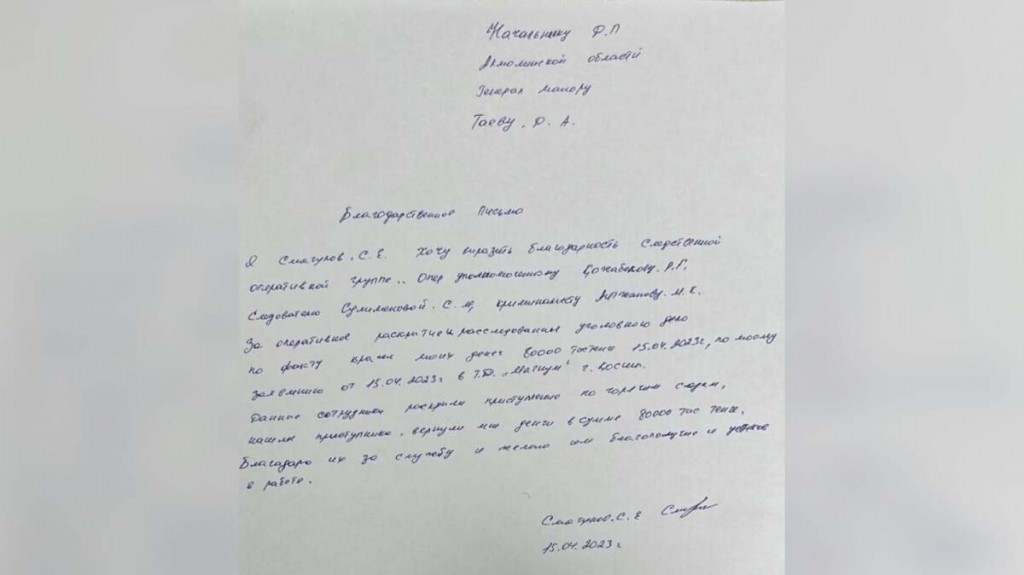 Начальнику Д.П
Акмолинской области
Генерал майору
Таеву. Д. А.
Благодарственное Письмо
Я Смагулов. С.Е. Хочу выразить благодарность Следственной
оперативной группе.. Опер уполномоченному Кожабекову. Р.Г,
Следователю Сулименовой. С. М, криминалисту М. К.
За оперативное раскрытие и расследование уголовного дело
по факту кражи моих денег 80000 тыс тенге 15.04.2023г, по моему
заявлению от 15.04.2023г в Т.Д. „Магнум" г. Косшы.
Данные сотрудники раскрыли преступление по горячим следам,
нашли преступника, вернули мне деньги в сумме 80000 тыс тенге.
Благодарю их за службу и желаю им благополучие и успехов
в работе.
Смагулов. С. Е
15.04.2023 г